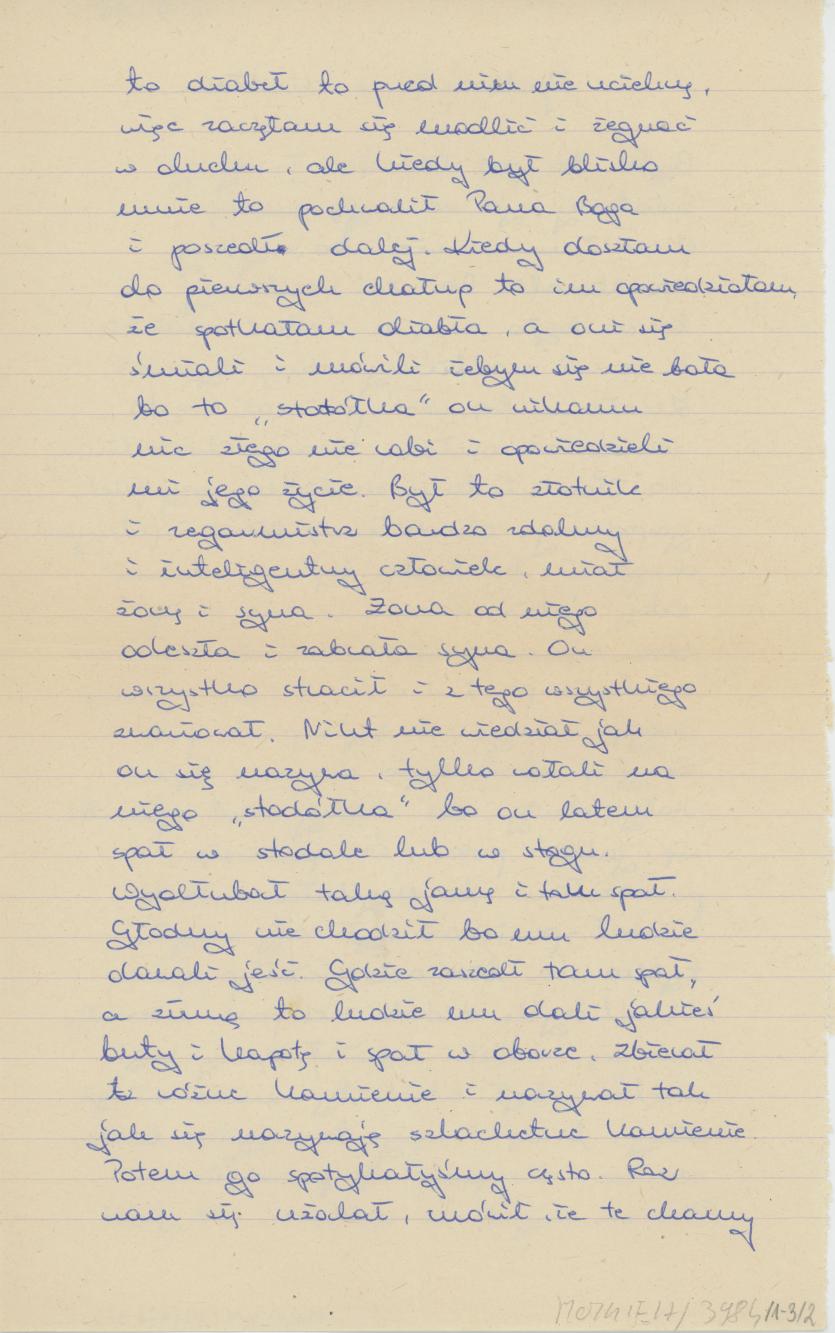 to diabeł to przed nim nie ucieknę,
więc zaczęłam się modlić i żegnać
w duchu, ale kiedy był blisko
mnie to pochwalił Pana Boga
i poszedł dalej. Kiedy doszłam
do pierwszych chałup to im opowiedziałam,
że spotkałam diabła, a oni się
śmiali i mówili żebym się nie bała
bo to „stodółka" on nikomu
nic złego nie robi i opowiedzieli
mi jego życie. Był to złotnik
i zegarmistrz bardzo zdolny
i inteligentny człowiek, miał
żonę i syna. Żona od niego
odeszła i zabrała syna. On
wszystko stracił i z tego wszystkiego
zwariował. Nikt nie wiedział jak
on się nazywa, tylko wołali na
niego „stodółka" bo on latem
spał w stodole lub w stogu.
Wydłubał taką jamę i tam spał.
Głodny nie chodził bo mu ludzie
dawali jeść. Gdzie zaszedł tam spał,
a zimą to ludzie mu dali jakieś
buty i kapotę i spał w oborze. Zbierał
te różne kamienie i nazywał tak
jak się nazywają szlachetne kamienie.
Potem go spotykałyśmy często. Raz
nam się użalał, mówił, że te chamy